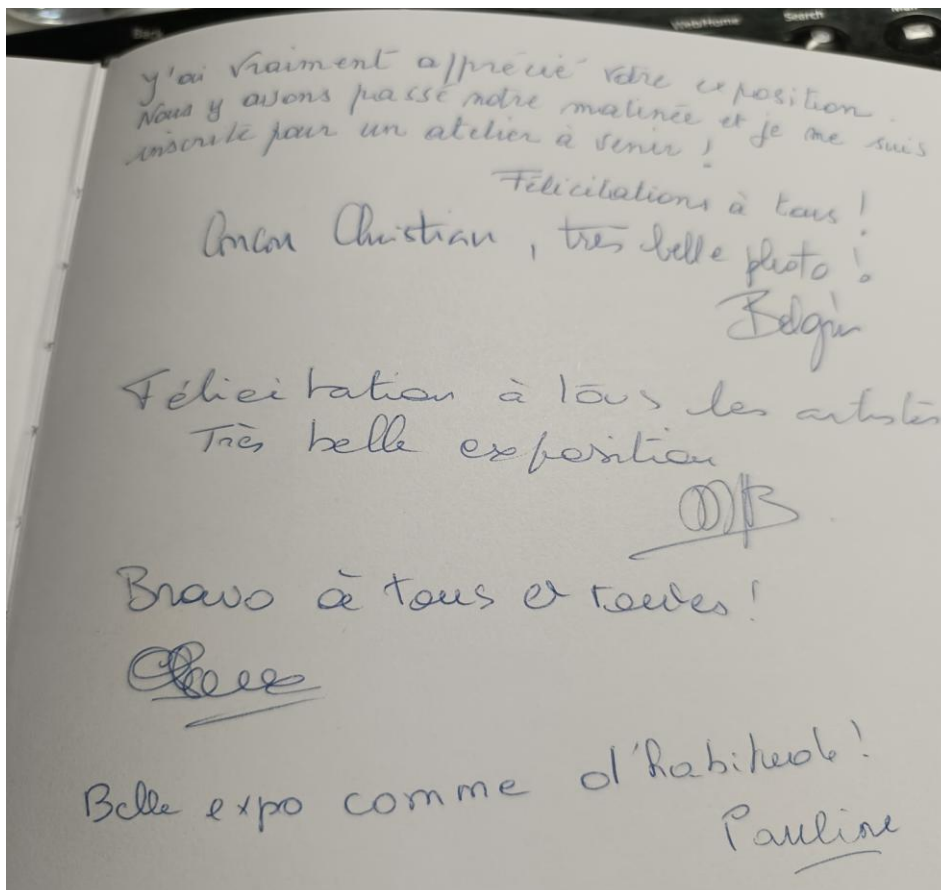 Web/Home Search
J'ai vraiment apprécié votre exposition.
Nous y avons passé notre matinée et je me suis
inscrite pour un atelier à venir !
Félicitations à tous !
Christian, très belle photo !
Félicitation à tous les artistes
Très belle exposition
Bravo à tous et toutes !
Belle expo comme d'habitude !
Pauline